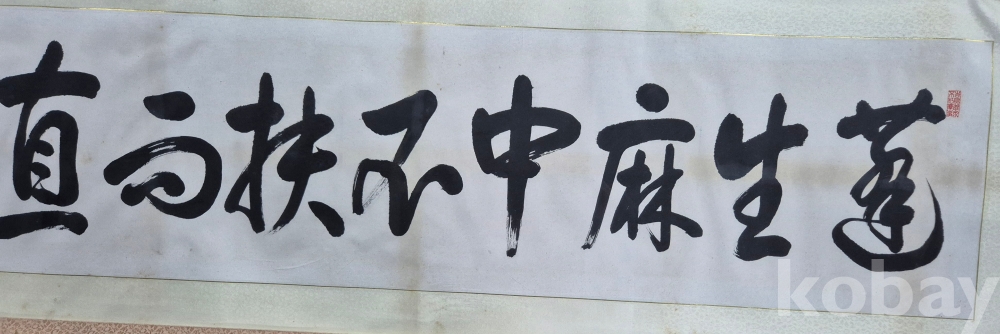 蓬生麻中不扶而直
kobay